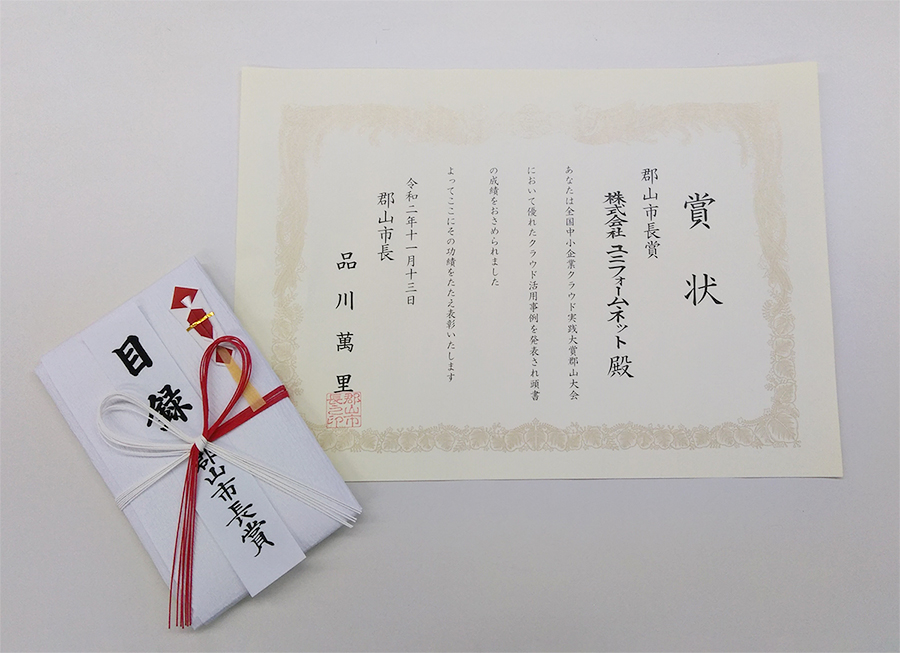 賞状
郡山市長賞
株式会社 ユニフォームネット 殿
あなたは全国中小企業クラウド実践大賞郡山大会
において優れたクラウド活用事例を発表され頭書
の成績をおさめられました
よってここにその功績をたたえ表彰いたします
令和二年十一月十三日
郡山市長
品川萬里
郡山市長之印
目録
郡山市長賞